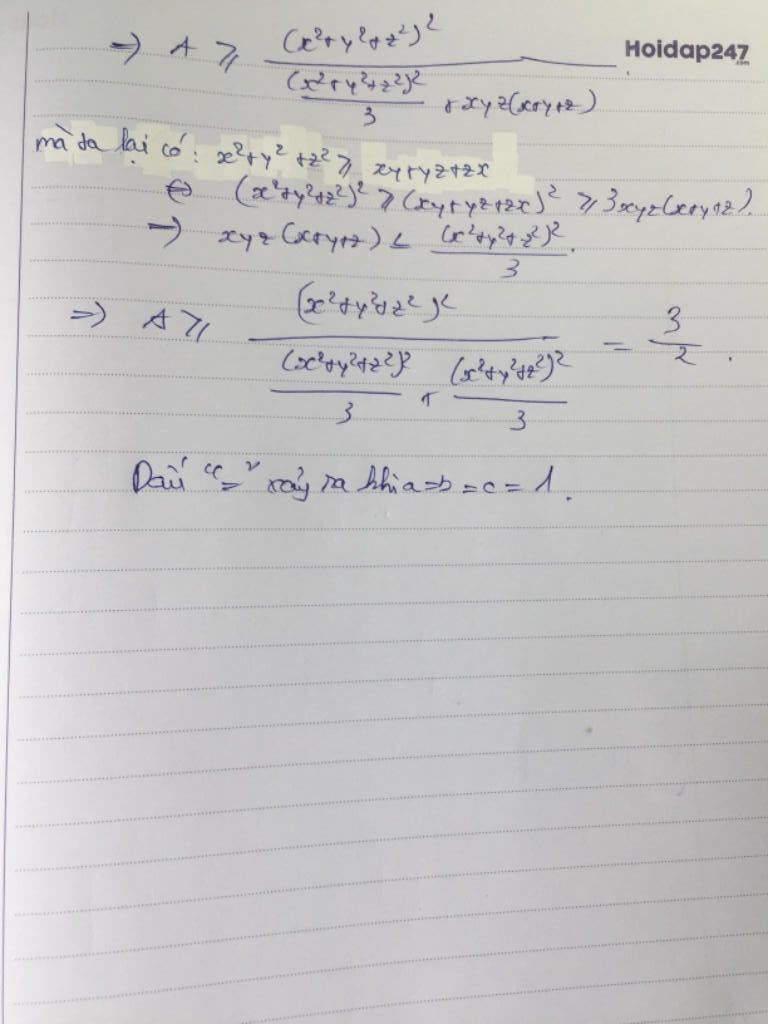 => A ≥ (x²+y²+z²)² / ((x²+y²+z²)²/3 + xyz(x+y+z))
Hoidap247
.com
mà ta lại có: x²+y²+z² ≥ xy+yz+zx
⇔ (x²+y²+z²)² ≥ (xy+yz+zx)² ≥ 3xyz(x+y+z).
=> xyz(x+y+z) ≤ (x²+y²+z²)²/3.
=> A ≥ (x²+y²+z²)² / ((x²+y²+z²)²/3 + (x²+y²+z²)²/3) = 3/2.
Dấu "=" xảy ra khi a=b=c=1.